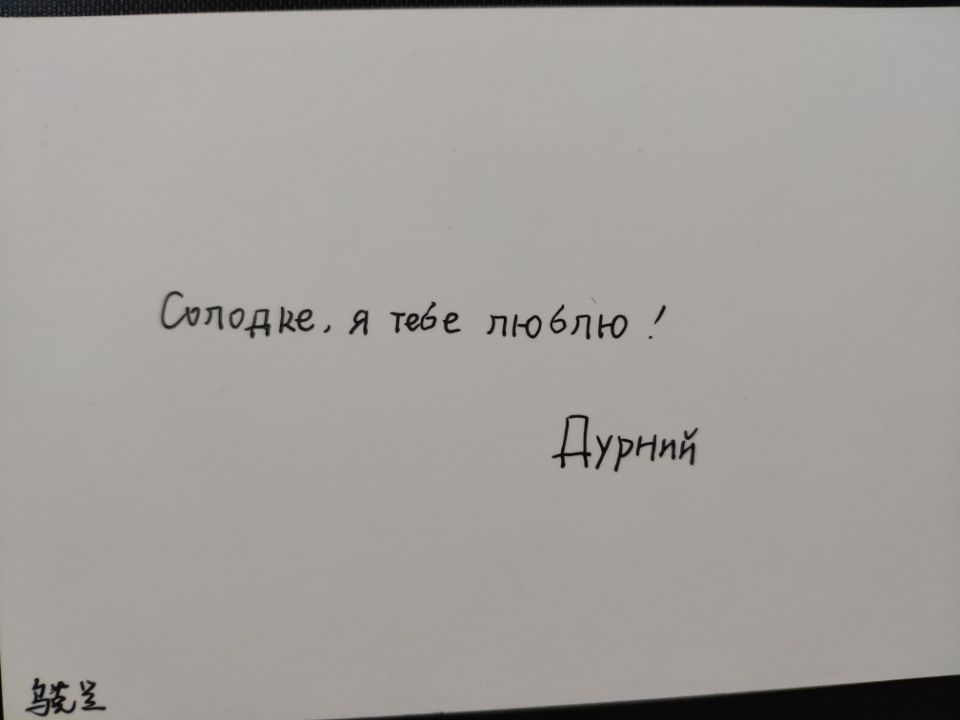 Солодке, я тебе люблю!
Дурний
乌克兰